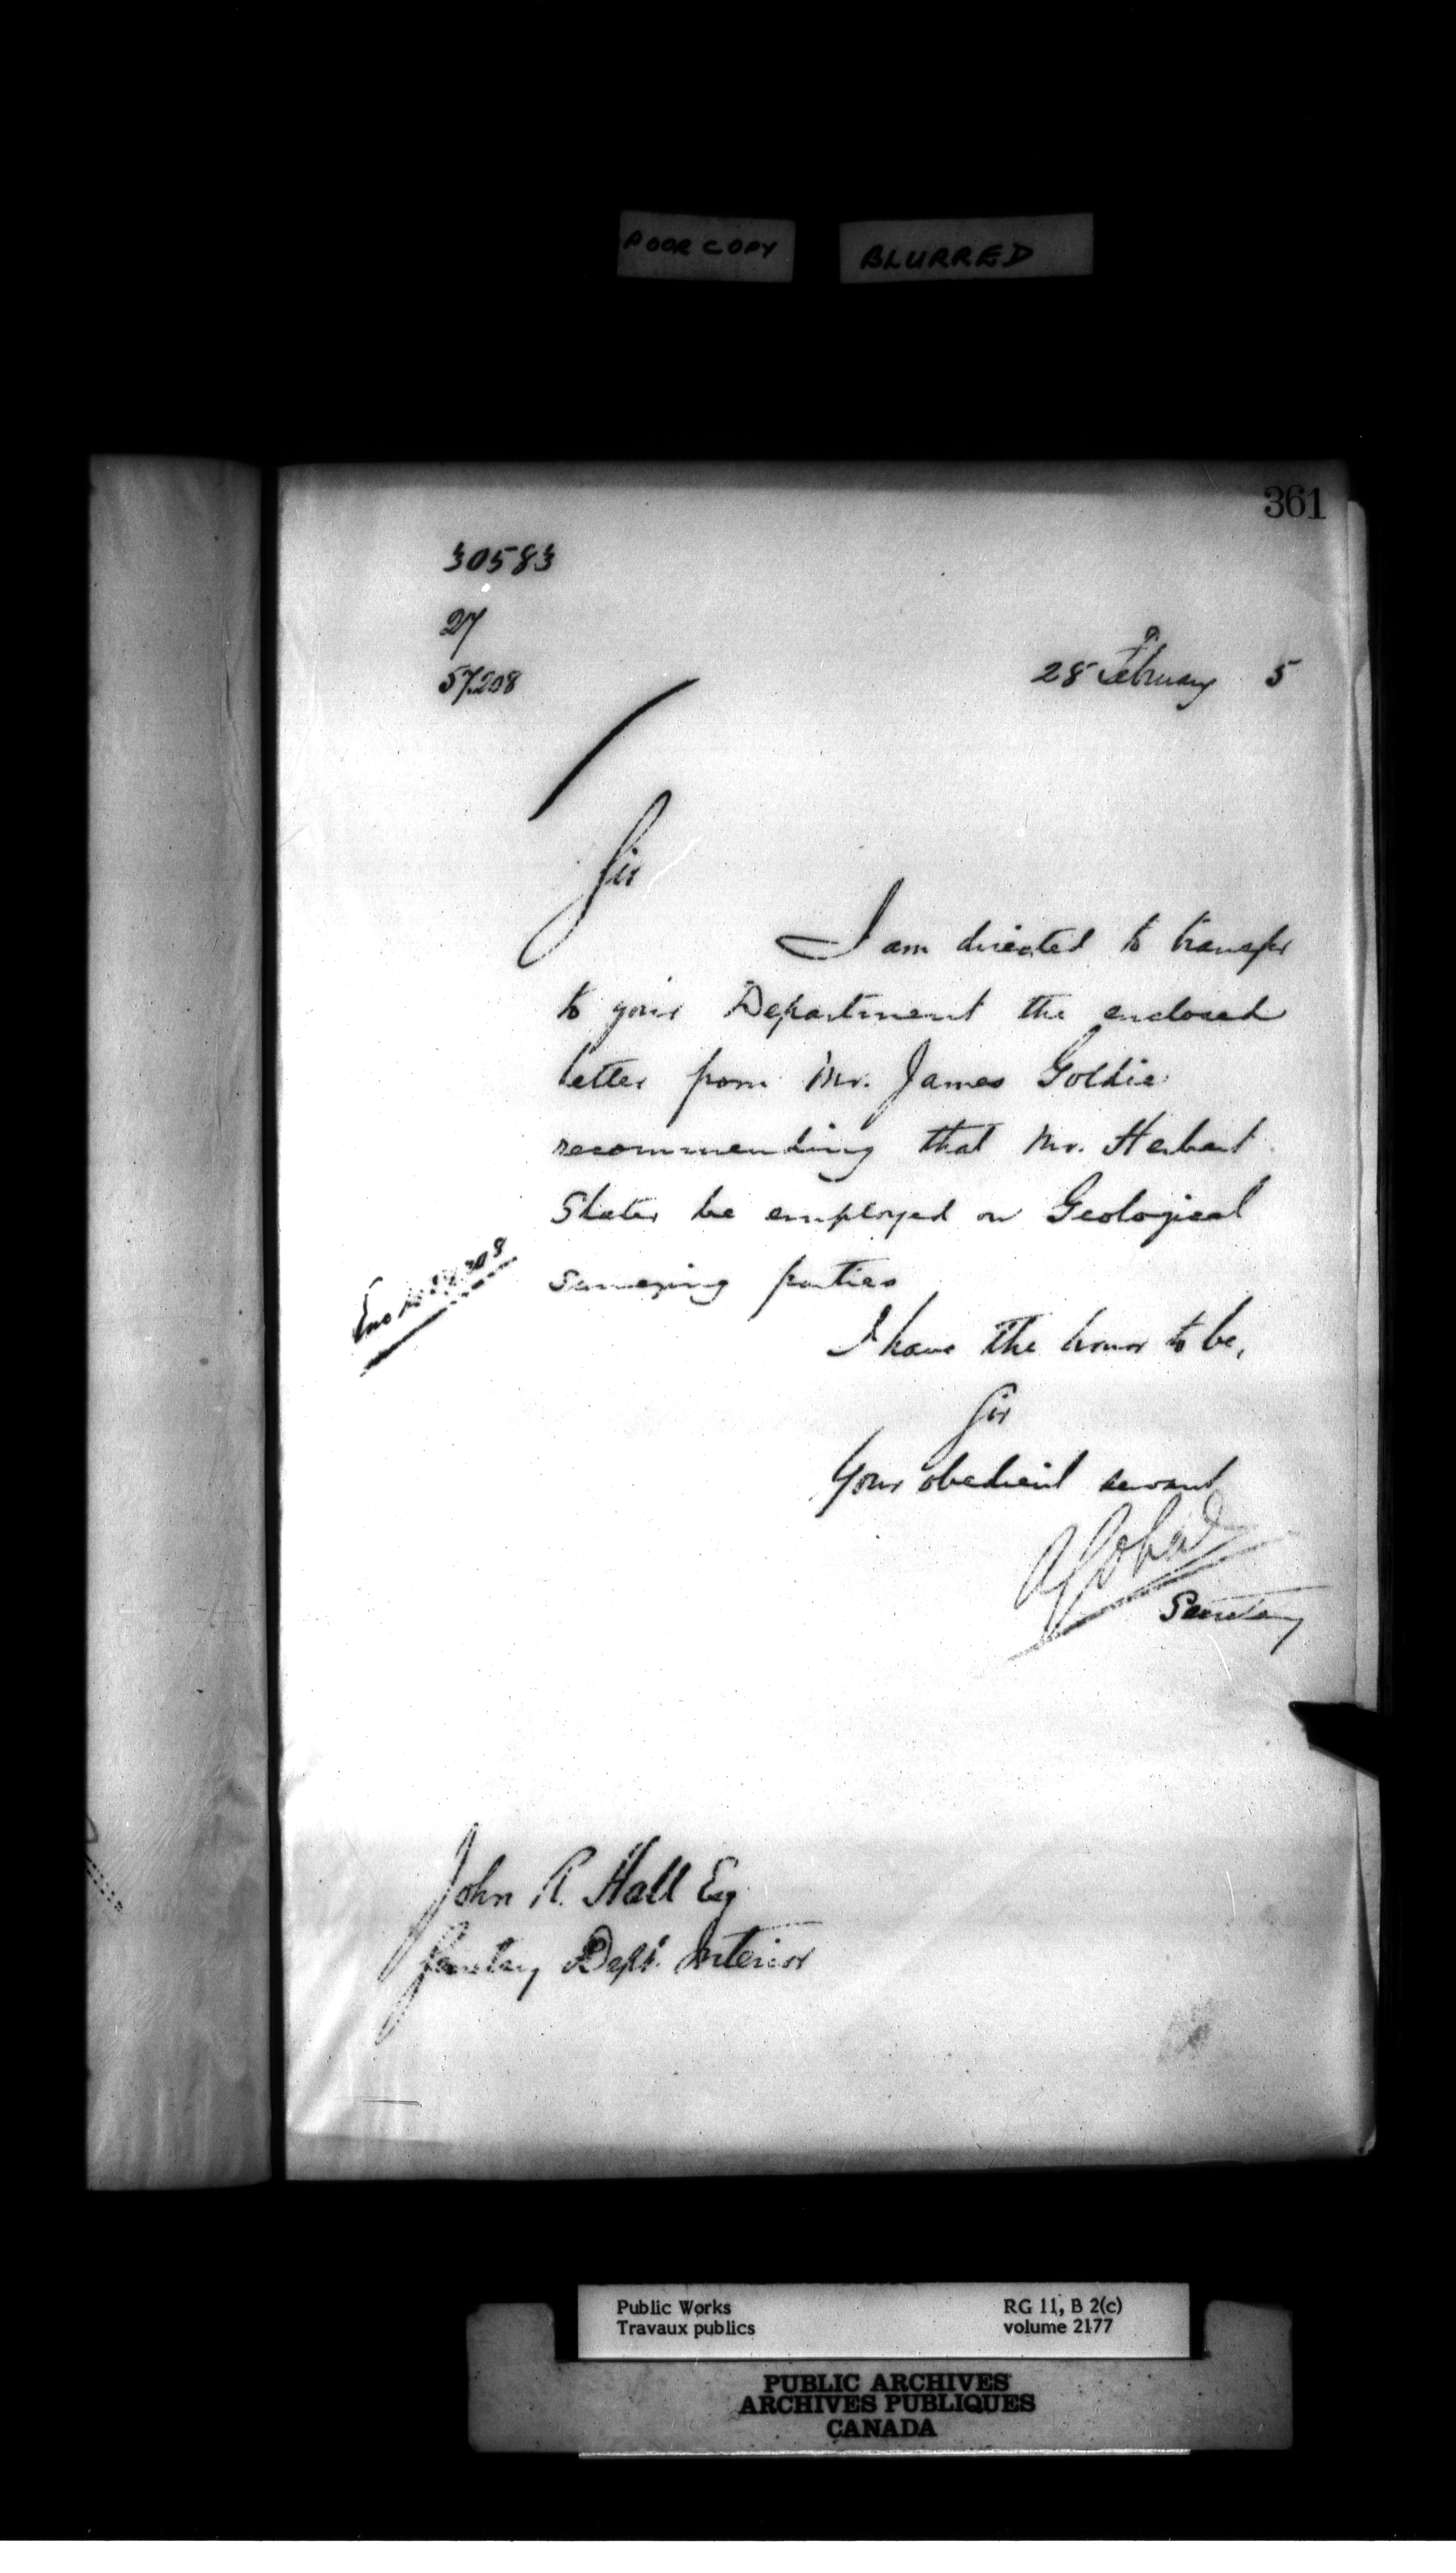 POOR COPY BLURRED
361
30583
27
57208
28 February 5
Sir
I am directed to transfer
to your Department the enclosed
letter from Mr. James Goldie
recommending that Mr. Herbert
be employed on Geological
surveying parties
I have the honor to be,
Sir
Your obedient servant
Secretary
John R. Hall Esq
Secretary Dept. Interior
Public Works RG 11, B 2(c)
Travaux publics volume 2177
PUBLIC ARCHIVES
ARCHIVES PUBLIQUES
CANADA